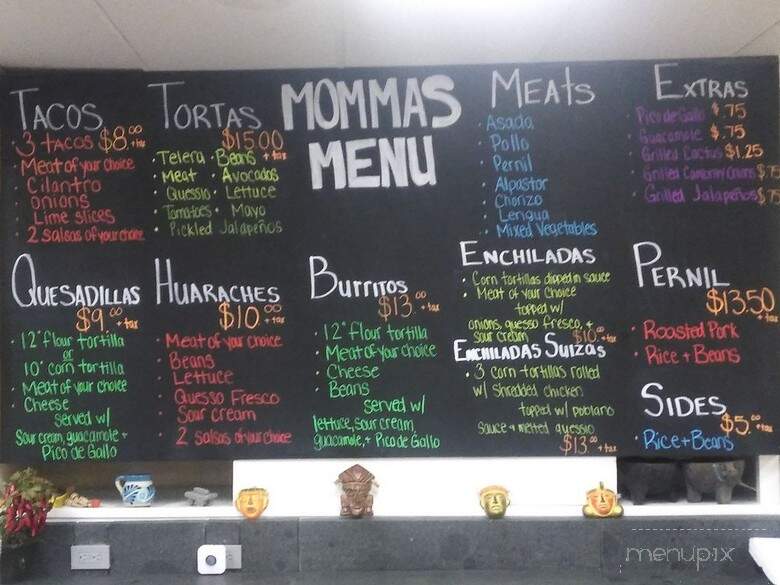 MOMMAS
MENU
TACOS
3 tacos $8.00 +tax
• Meat of your choice
• Cilantro
onions
• Lime slices
• 2 salsas of your choice
TORTAS
$15.00 +tax
• Telera • Beans
• Meat • Avocados
• Quessio • Lettuce
• Tomatoes • Mayo
• Pickled Jalapeños
MEAts
• Asada
• Pollo
• Pernil
• Alpastor
• Chorizo
• Lengua
• Mixed Vegetables
EXTRAS
• Pico de Gallo $.75
• Guacamole $.75
• Grilled Cactus $1.25
• Grilled Cambray Onions $.75
• Grilled Jalapeños $.75
QUESADILLAS
$9.00 +tax
• 12" flour tortilla
or
10" corn tortilla
• Meat of your choice
• Cheese
served w/
Sour cream, guacamole +
Pico de Gallo
HUARACHES
$10.00 +tax
• Meat of your choice
• Beans
• Lettuce
• Quesso Fresco
• Sour cream
• 2 salsas of your choice
BURRITOS
$13.00 +tax
• 12" flour tortilla
• Meat of your choice
• Cheese
• Beans
served w/
lettuce, sour cream,
guacamole, + Pico de Gallo
ENCHILADAS
• Corn tortillas dipped in sauce
• Meat of your choice
topped w/
onions, quesso fresco, +
sour cream $10.00 +tax
ENCHILADAS SUIZAS
• 3 corn tortillas rolled
w/ shredded chicken
topped w/ poblano
sauce + melted quessio
$13.00 +tax
PERNIL
$13.50 +tax
• Roasted Pork
• Rice + Beans
SIDES
$5.00 +tax
• Rice + Beans
menupix